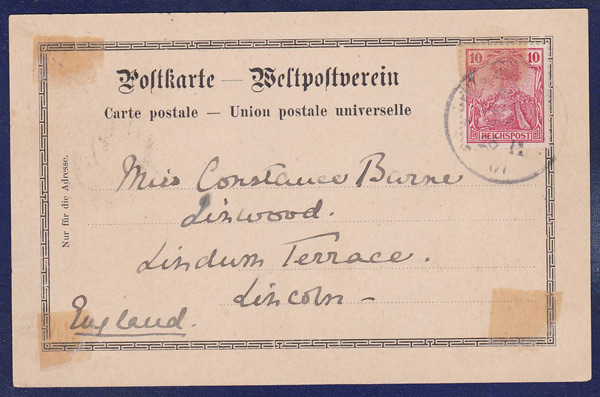 10 10
REICHSPOST
Postkarte — Weltpostverein
Carte postale — Union postale universelle
Nur für die Adresse.
Miss Constance Barne
Linwood.
Lindum Terrace.
Lincoln —
England.